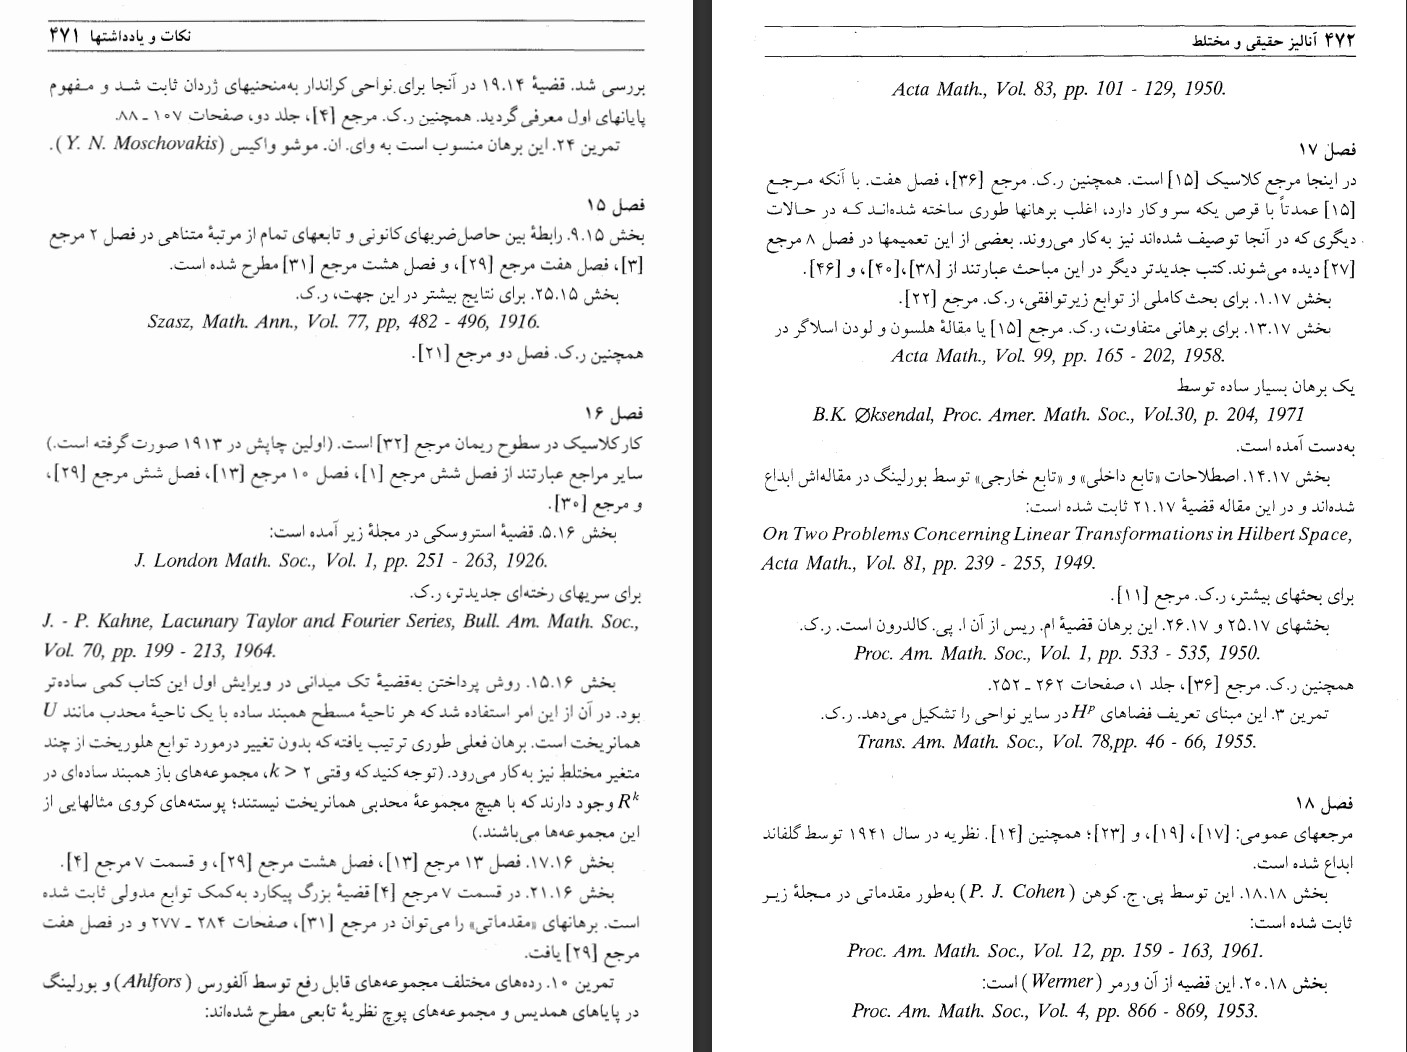 نکات و یادداشتها ۴۷۱
بررسی شد. قضیهٔ ۱۹.۱۴ در آنجا برای نواحی کراندار به‌منحنیهای ژردان ثابت شد و مفهوم
پایانهای اول معرفی گردید. همچنین ر.ک. مرجع [۴]، جلد دو، صفحات ۱۰۷ ـ ۸۸.
تمرین ۲۴. این برهان منسوب است به وای. ان. موشو واکیس (Y. N. Moschovakis).
فصل ۱۵
بخش ۹.۱۵. رابطهٔ بین حاصل‌ضربهای کانونی و تابعهای تمام از مرتبهٔ متناهی در فصل ۲ مرجع
[۳]، فصل هفت مرجع [۲۹]، و فصل هشت مرجع [۳۱] مطرح شده است.
بخش ۲۵.۱۵. برای نتایج بیشتر در این جهت، ر.ک.
Szasz, Math. Ann., Vol. 77, pp, 482 - 496, 1916.
همچنین ر.ک. فصل دو مرجع [۲۱].
فصل ۱۶
کار کلاسیک در سطوح ریمان مرجع [۳۲] است. (اولین چاپش در ۱۹۱۳ صورت گرفته است.)
سایر مراجع عبارتند از فصل شش مرجع [۱]، فصل ۱۰ مرجع [۱۳]، فصل شش مرجع [۲۹]،
و مرجع [۳۰].
بخش ۵.۱۶. قضیهٔ استروسکی در مجلهٔ زیر آمده است:
J. London Math. Soc., Vol. 1, pp. 251 - 263, 1926.
برای سریهای رخته‌ای جدیدتر، ر.ک.
J. - P. Kahne, Lacunary Taylor and Fourier Series, Bull. Am. Math. Soc.,
Vol. 70, pp. 199 - 213, 1964.
بخش ۱۵.۱۶. روش پرداختن به‌قضیهٔ تک میدانی در ویرایش اول این کتاب کمی ساده‌تر
بود. در آن از این امر استفاده شد که هر ناحیهٔ مسطح همبند ساده با یک ناحیهٔ محدب مانند U
همانریخت است. برهان فعلی طوری ترتیب یافته که بدون تغییر درمورد توابع هلوریخت از چند
متغیر مختلط نیز به‌کار می‌رود. (توجه کنید که وقتی k > ۲، مجموعه‌های باز همبند ساده‌ای در
R^k وجود دارند که با هیچ مجموعهٔ محدبی همانریخت نیستند؛ پوسته‌های کروی مثالهایی از
این مجموعه‌ها می‌باشند.)
بخش ۱۷.۱۶. فصل ۱۳ مرجع [۱۳]، فصل هشت مرجع [۲۹]، و قسمت ۷ مرجع [۴].
بخش ۲۱.۱۶. در قسمت ۷ مرجع [۴] قضیهٔ بزرگ پیکارد به‌کمک توابع مدولی ثابت شده
است. برهانهای «مقدماتی» را می‌توان در مرجع [۳۱]، صفحات ۲۸۴ ـ ۲۷۷ و در فصل هفت
مرجع [۲۹] یافت.
تمرین ۱۰. رده‌های مختلف مجموعه‌های قابل رفع توسط آلفورس (Ahlfors) و بورلینگ
در پایاهای همدیس و مجموعه‌های پوچ نظریهٔ تابعی مطرح شده‌اند:
۴۷۲ آنالیز حقیقی و مختلط
Acta Math., Vol. 83, pp. 101 - 129, 1950.
فصل ۱۷
در اینجا مرجع کلاسیک [۱۵] است. همچنین ر.ک. مرجع [۳۶]، فصل هفت. با آنکه مرجع
[۱۵] عمدتاً با قرص یکه سر و کار دارد، اغلب برهانها طوری ساخته شده‌اند که در حالات
دیگری که در آنجا توصیف شده‌اند نیز به‌کار می‌روند. بعضی از این تعمیمها در فصل ۸ مرجع
[۲۷] دیده می‌شوند. کتب جدیدتر دیگر در این مباحث عبارتند از [۳۸]،[۴۰]، و [۴۶].
بخش ۱.۱۷. برای بحث کاملی از توابع زیرتوافقی، ر.ک. مرجع [۲۲].
بخش ۱۳.۱۷. برای برهانی متفاوت، ر.ک. مرجع [۱۵] یا مقالهٔ هلسون و لودن اسلاگر در
Acta Math., Vol. 99, pp. 165 - 202, 1958.
یک برهان بسیار ساده توسط
B.K. Øksendal, Proc. Amer. Math. Soc., Vol.30, p. 204, 1971
به‌دست آمده است.
بخش ۱۴.۱۷. اصطلاحات «تابع داخلی» و «تابع خارجی» توسط بورلینگ در مقاله‌اش ابداع
شده‌اند و در این مقاله قضیهٔ ۲۱.۱۷ ثابت شده است:
On Two Problems Concerning Linear Transformations in Hilbert Space,
Acta Math., Vol. 81, pp. 239 - 255, 1949.
برای بحثهای بیشتر، ر.ک. مرجع [۱۱].
بخشهای ۲۵.۱۷ و ۲۶.۱۷. این برهان قضیهٔ ام. ریس از آن ا. پی. کالدرون است. ر.ک.
Proc. Am. Math. Soc., Vol. 1, pp. 533 - 535, 1950.
همچنین ر.ک. مرجع [۳۶]، جلد ۱، صفحات ۲۶۲ ـ ۲۵۲.
تمرین ۳. این مبنای تعریف فضاهای H^p در سایر نواحی را تشکیل می‌دهد. ر.ک.
Trans. Am. Math. Soc., Vol. 78,pp. 46 - 66, 1955.
فصل ۱۸
مرجعهای عمومی: [۱۷]، [۱۹]، و [۲۳]؛ همچنین [۱۴]. نظریه در سال ۱۹۴۱ توسط گلفاند
ابداع شده است.
بخش ۱۸.۱۸. این توسط پی. ج. کوهن (P. J. Cohen) به‌طور مقدماتی در مجلهٔ زیر
ثابت شده است:
Proc. Am. Math. Soc., Vol. 12, pp. 159 - 163, 1961.
بخش ۲۰.۱۸. این قضیه از آن ورمر (Wermer) است:
Proc. Am. Math. Soc., Vol. 4, pp. 866 - 869, 1953.